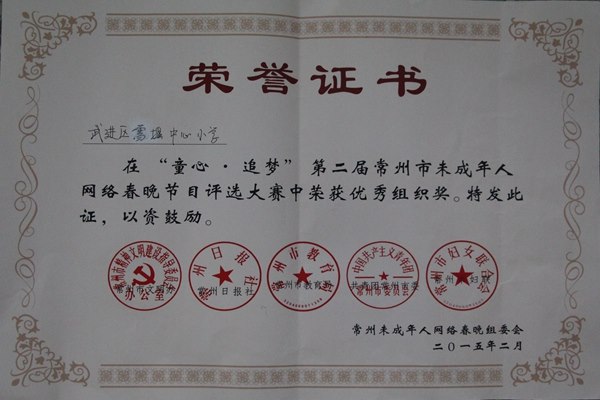 荣誉证书
武进区雪堰中心小学
在“童心·追梦”第二届常州市未成年人
网络春晚节目评选大赛中荣获优秀组织奖。特发此
证，以资鼓励。
常州市精神文明建设指导委员会
办公室
常州市文明办
常州日报社
常州日报社
常州市教育局
常州市教育局
中国共产主义青年团
常州市委员会
共青团常州市委
常州市妇女联合会
常州市妇联
常州未成年人网络春晚组委会
二〇一五年二月